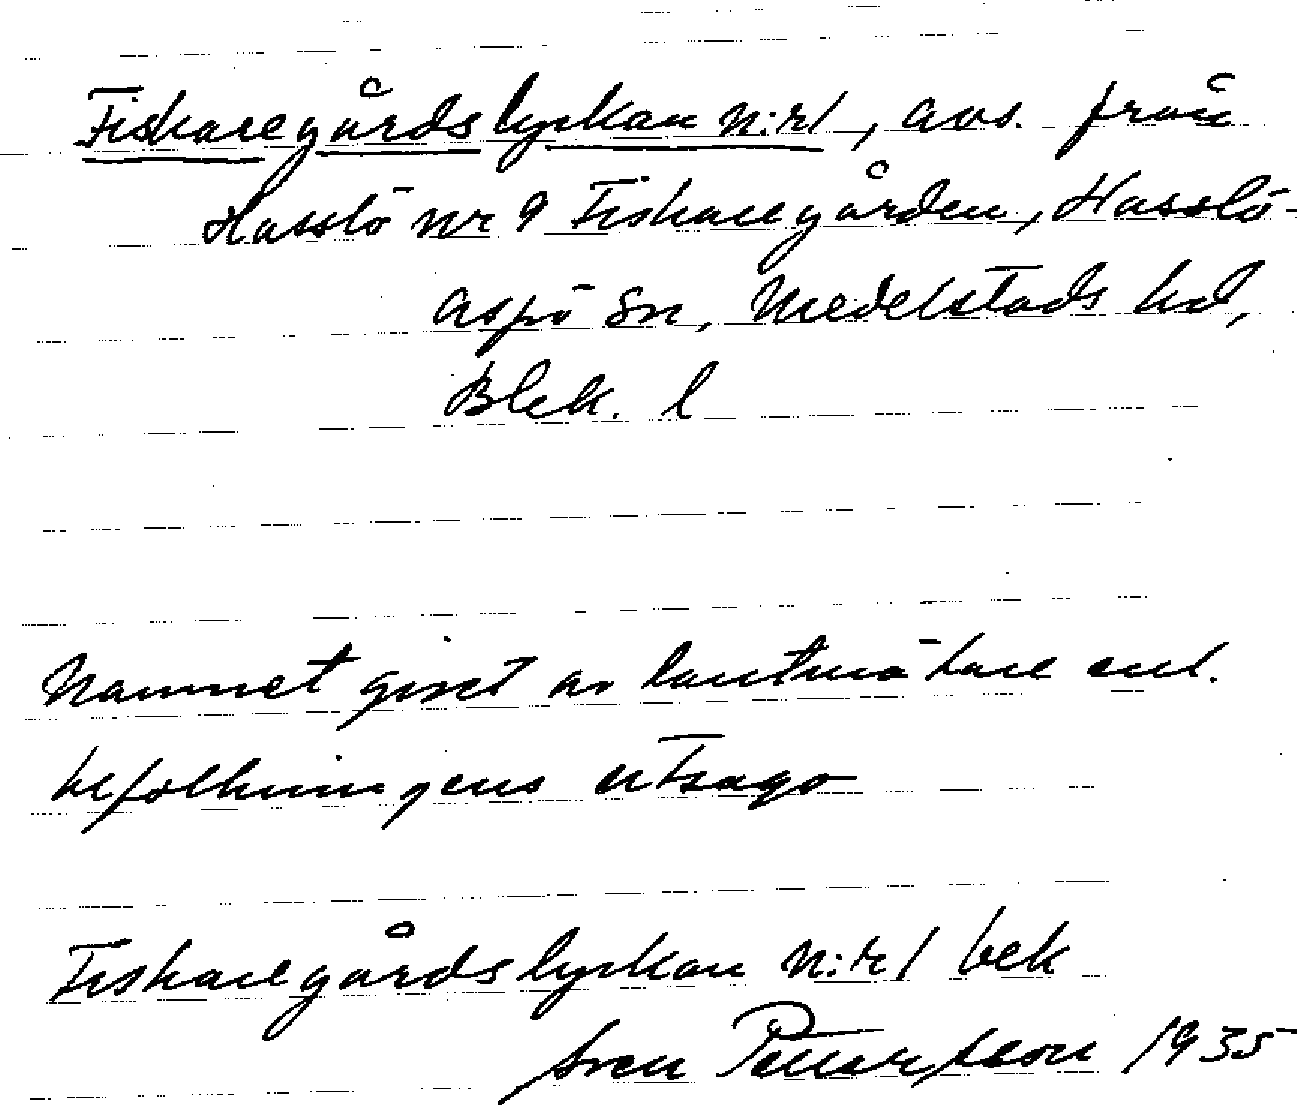 Fiskaregårdslyckan n:r 1, avs. från
Hasslö nr 9 Fiskaregården, Hasslö-
aspö sn, Medelstads hd,
Blek. l
Namnet givet av lantmätare enl.
befolkningens utsago
Fiskaregårdslyckan n:r 1 bek
Sven Pettersson 1935